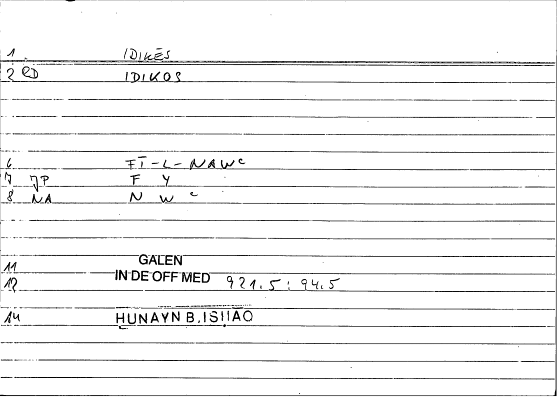 1 IDIKĒS
2 RD IDIKOS
6 FĪ-L-NAWᶜ
7 JP F Y
8 NA N W ᶜ
11 GALEN
12 IN DE OFF MED 921.5 : 94.5
14 HUNAYN B.ISHAQ